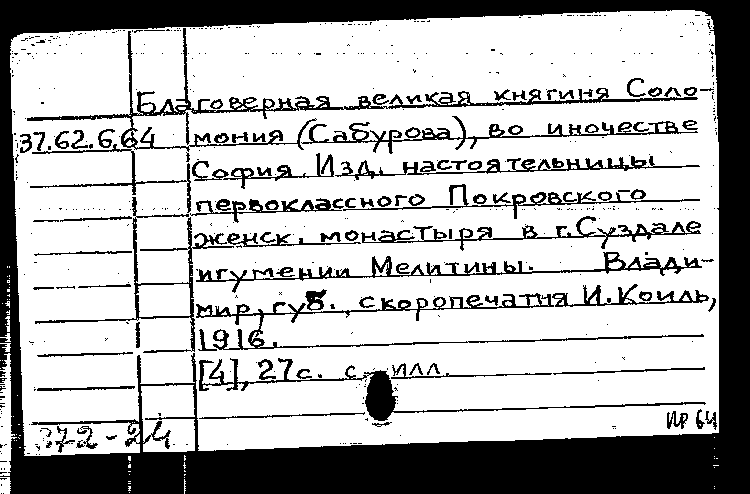 Благоверная великая княгиня Соло-
37.62.6.64 мония (Сабурова), во иночестве
София. Изд. настоятельницы
первоклассного Покровского
женск. монастыря в г. Суздале
игумении Мелитины. Влади-
мир, губ. скоропечатня И. Коиль,
1916.
[4], 27с. с илл.
372-24
ИР 64